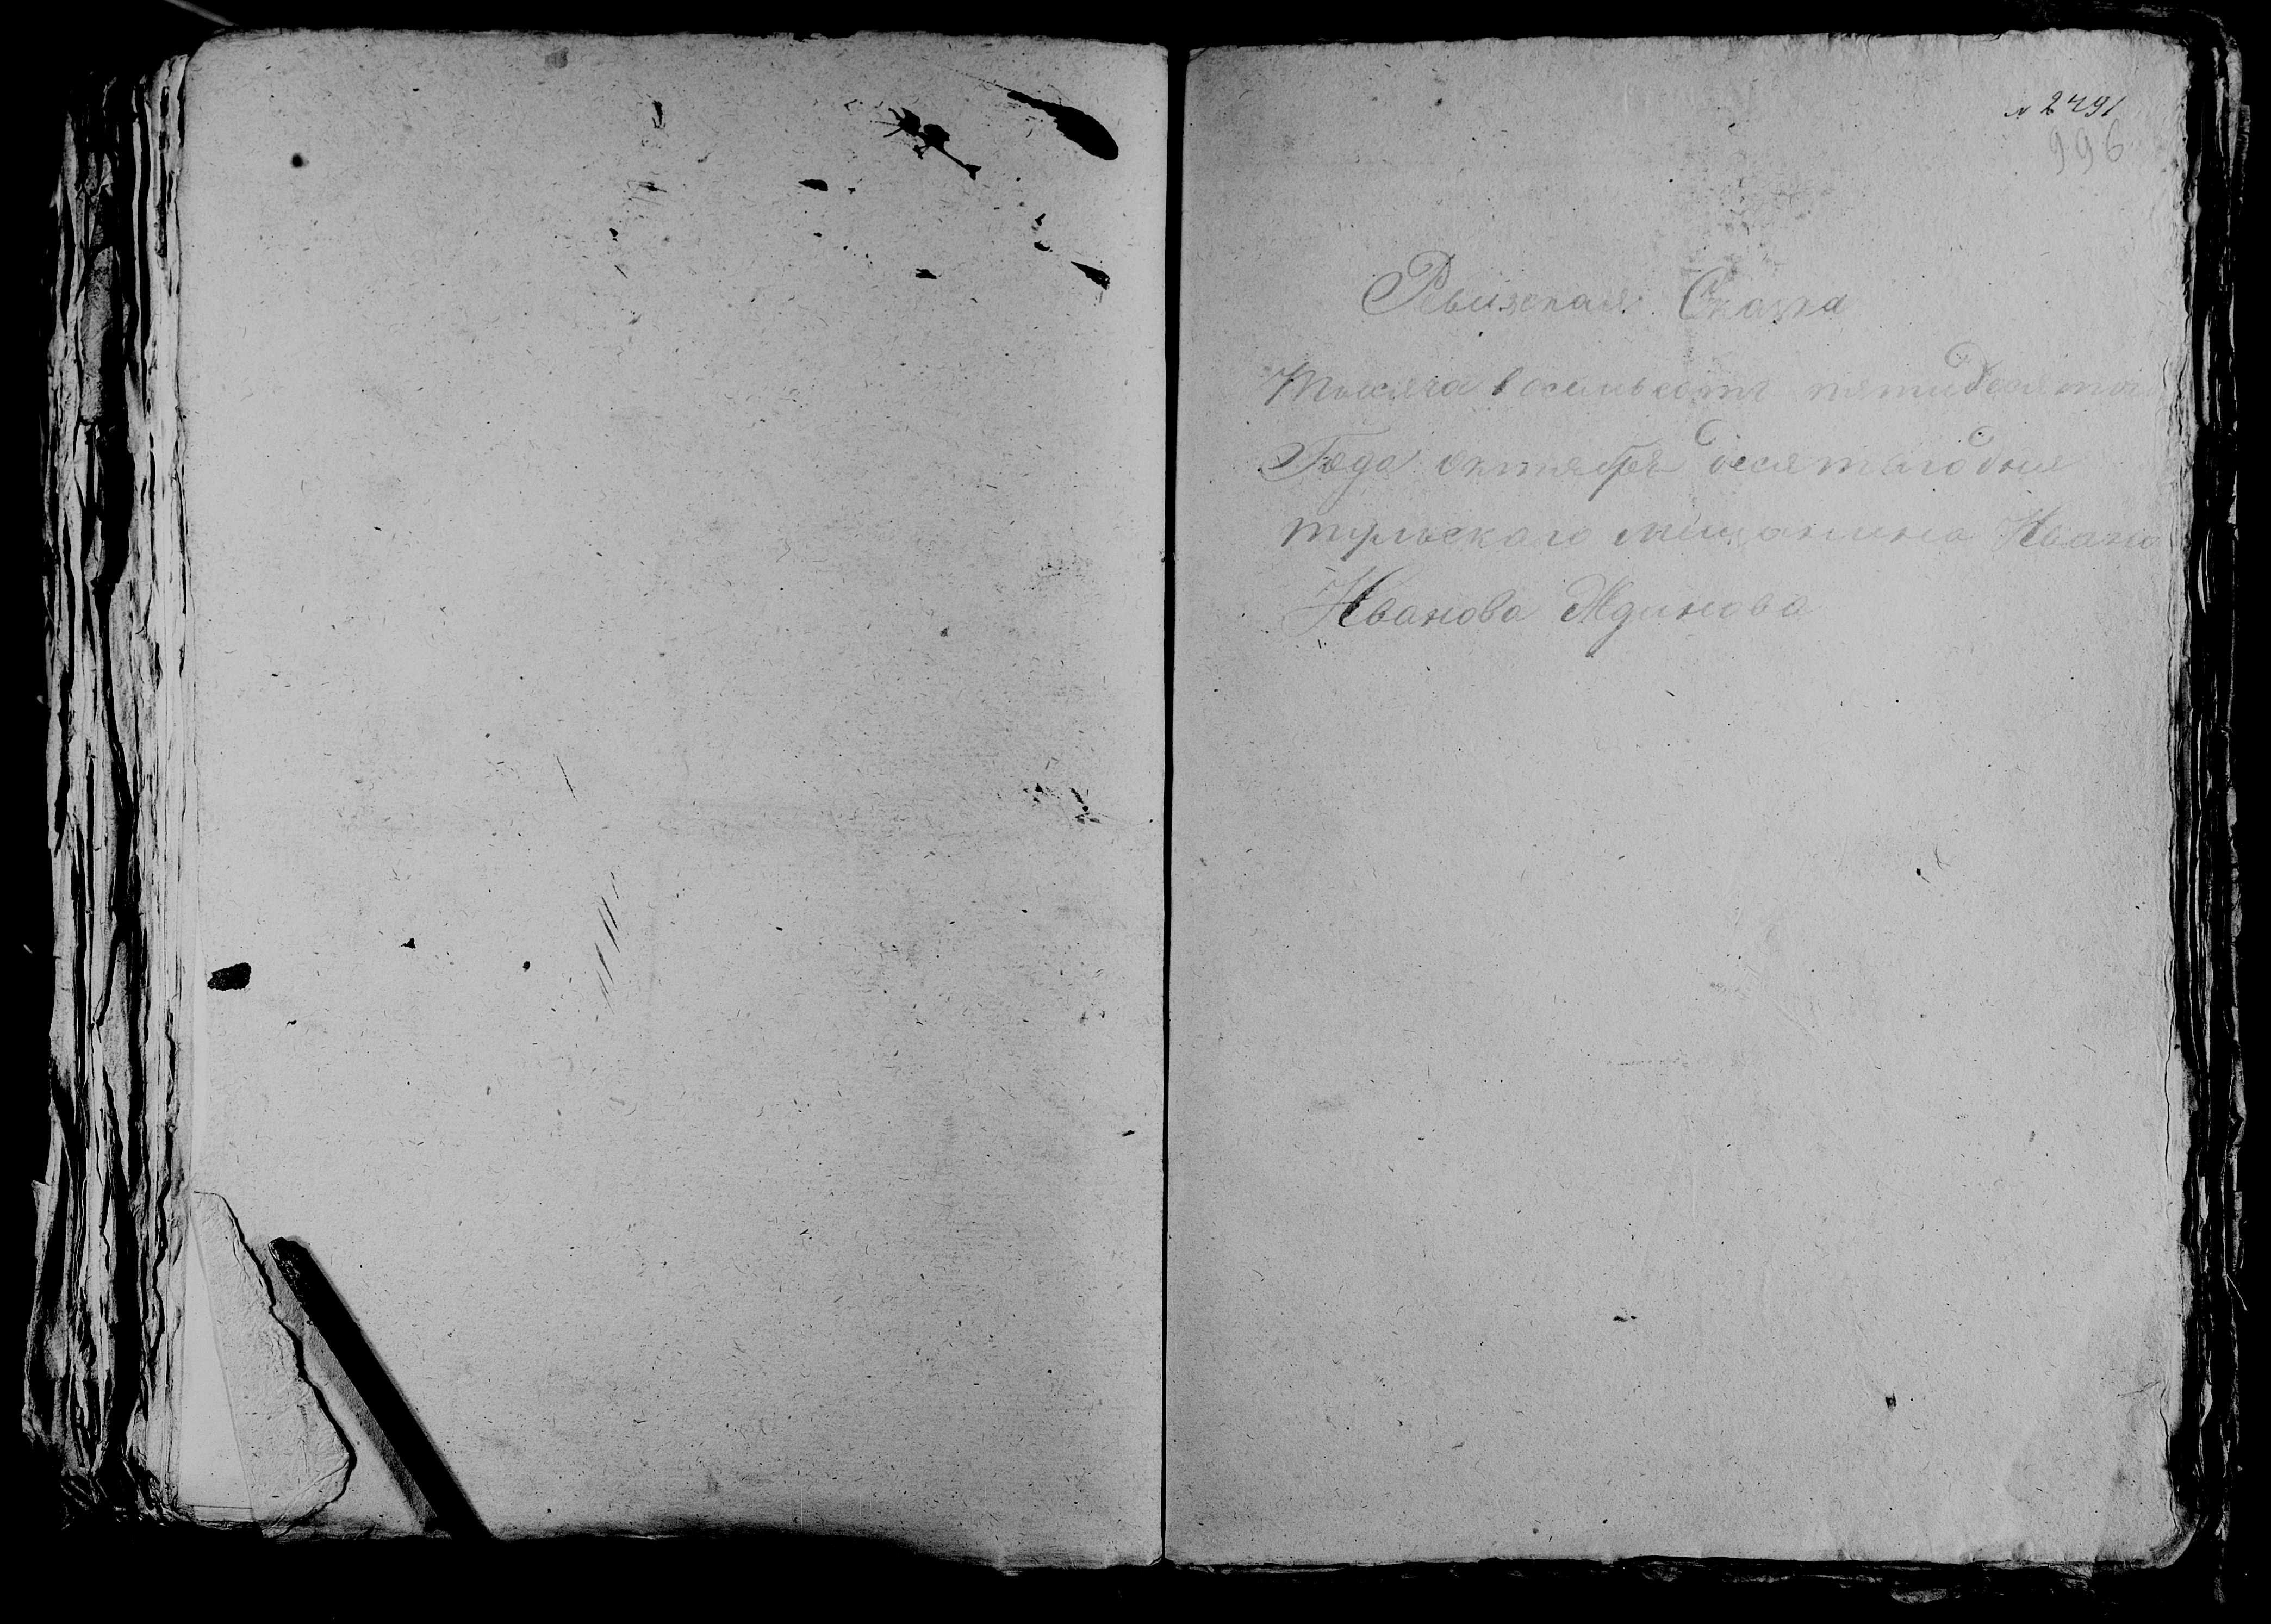 № 2491
996
Ревизская Сказка
Тысяча восемьсотъ пятидесятаго
Года октября десятаго дня
тульскаго мещанина Ивана
Иванова Ждинова